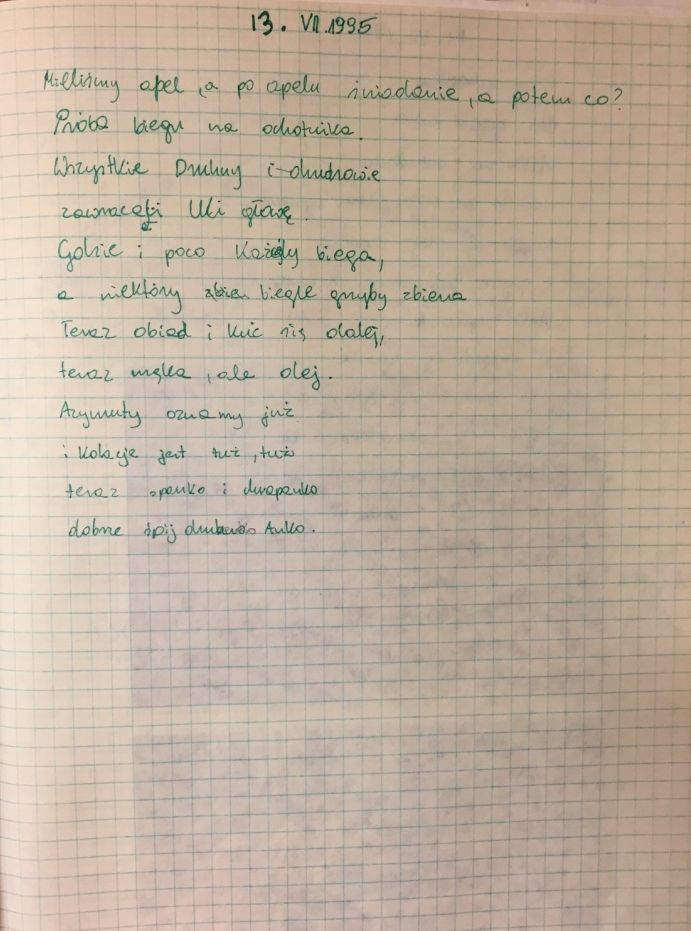 13. VII.1995
Mieliśmy apel, a po apelu śniadanie, a potem co?
Próba biegu na ochotnika.
Wszystkie Druhny i druhowie
Uli głowę.
Gdzie i poco Każdy biega,
a niektóry biegle grzyby zbiera
Teraz obiad i kuć się dalej,
teraz męka, ale olej.
Azymuty oznamy już
i Kolacja jest tuż, tuż
teraz spanko i chrapanko
dobrze śpij druhno Anko.